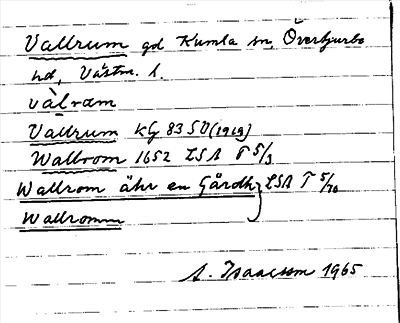 Vallrum gd Kumla sn, Övertjurbo
hd, Västm. l.
vàlram
Vallrum KG 83 SO (1919)
Wallrom 1652 LSA T 5/3
Wallrom ähr en Gårdh } LSA T 5/70
Wallromm
A. Isaacsson 1965